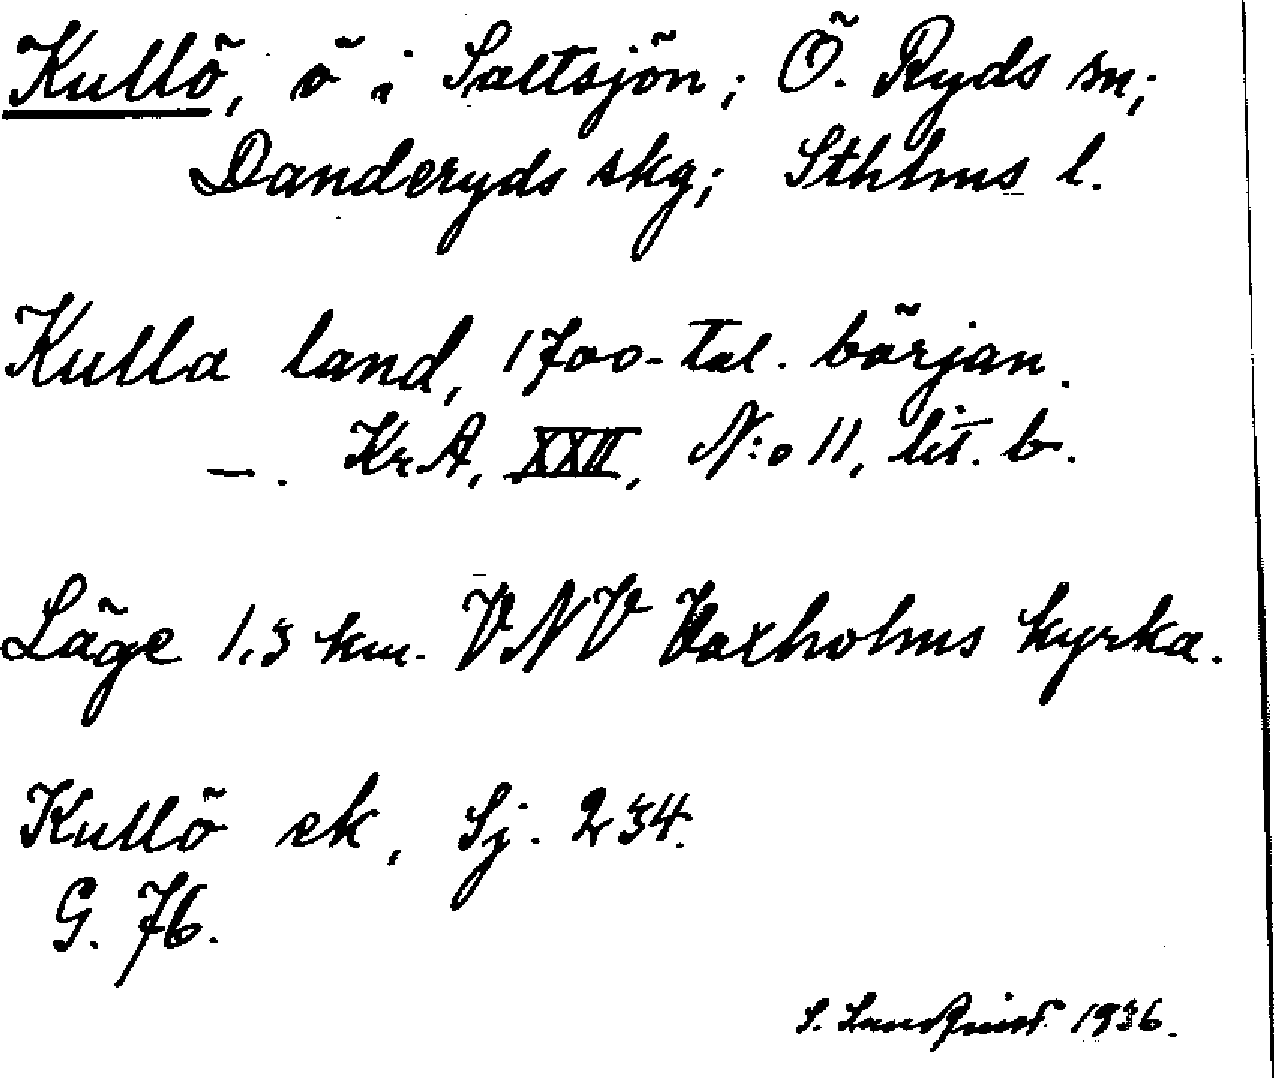 Kullö, ö i Saltsjön; Ö. Ryds sn;
Danderyds skg; Sthlms l.
Kulla land, 1700-tal. början.
—. KrA, XXII, N:o 11, lit. b.
Läge 1.5 km. VNV Vaxholms kyrka.
Kullö ek, Sj. 234.
G. 76.
S. 1936.